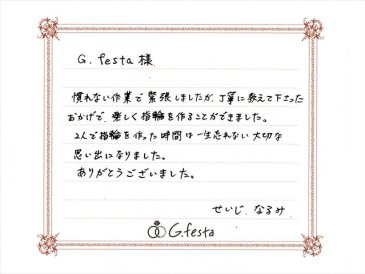 G.festa様
慣れない作業で緊張しましたが、丁寧に教えて下さった
おかげで、楽しく指輪を作ることができました。
2人で指輪を作った時間は一生忘れない大切な
思い出になりました。
ありがとうございました。
せいじ、なるみ
G.festa